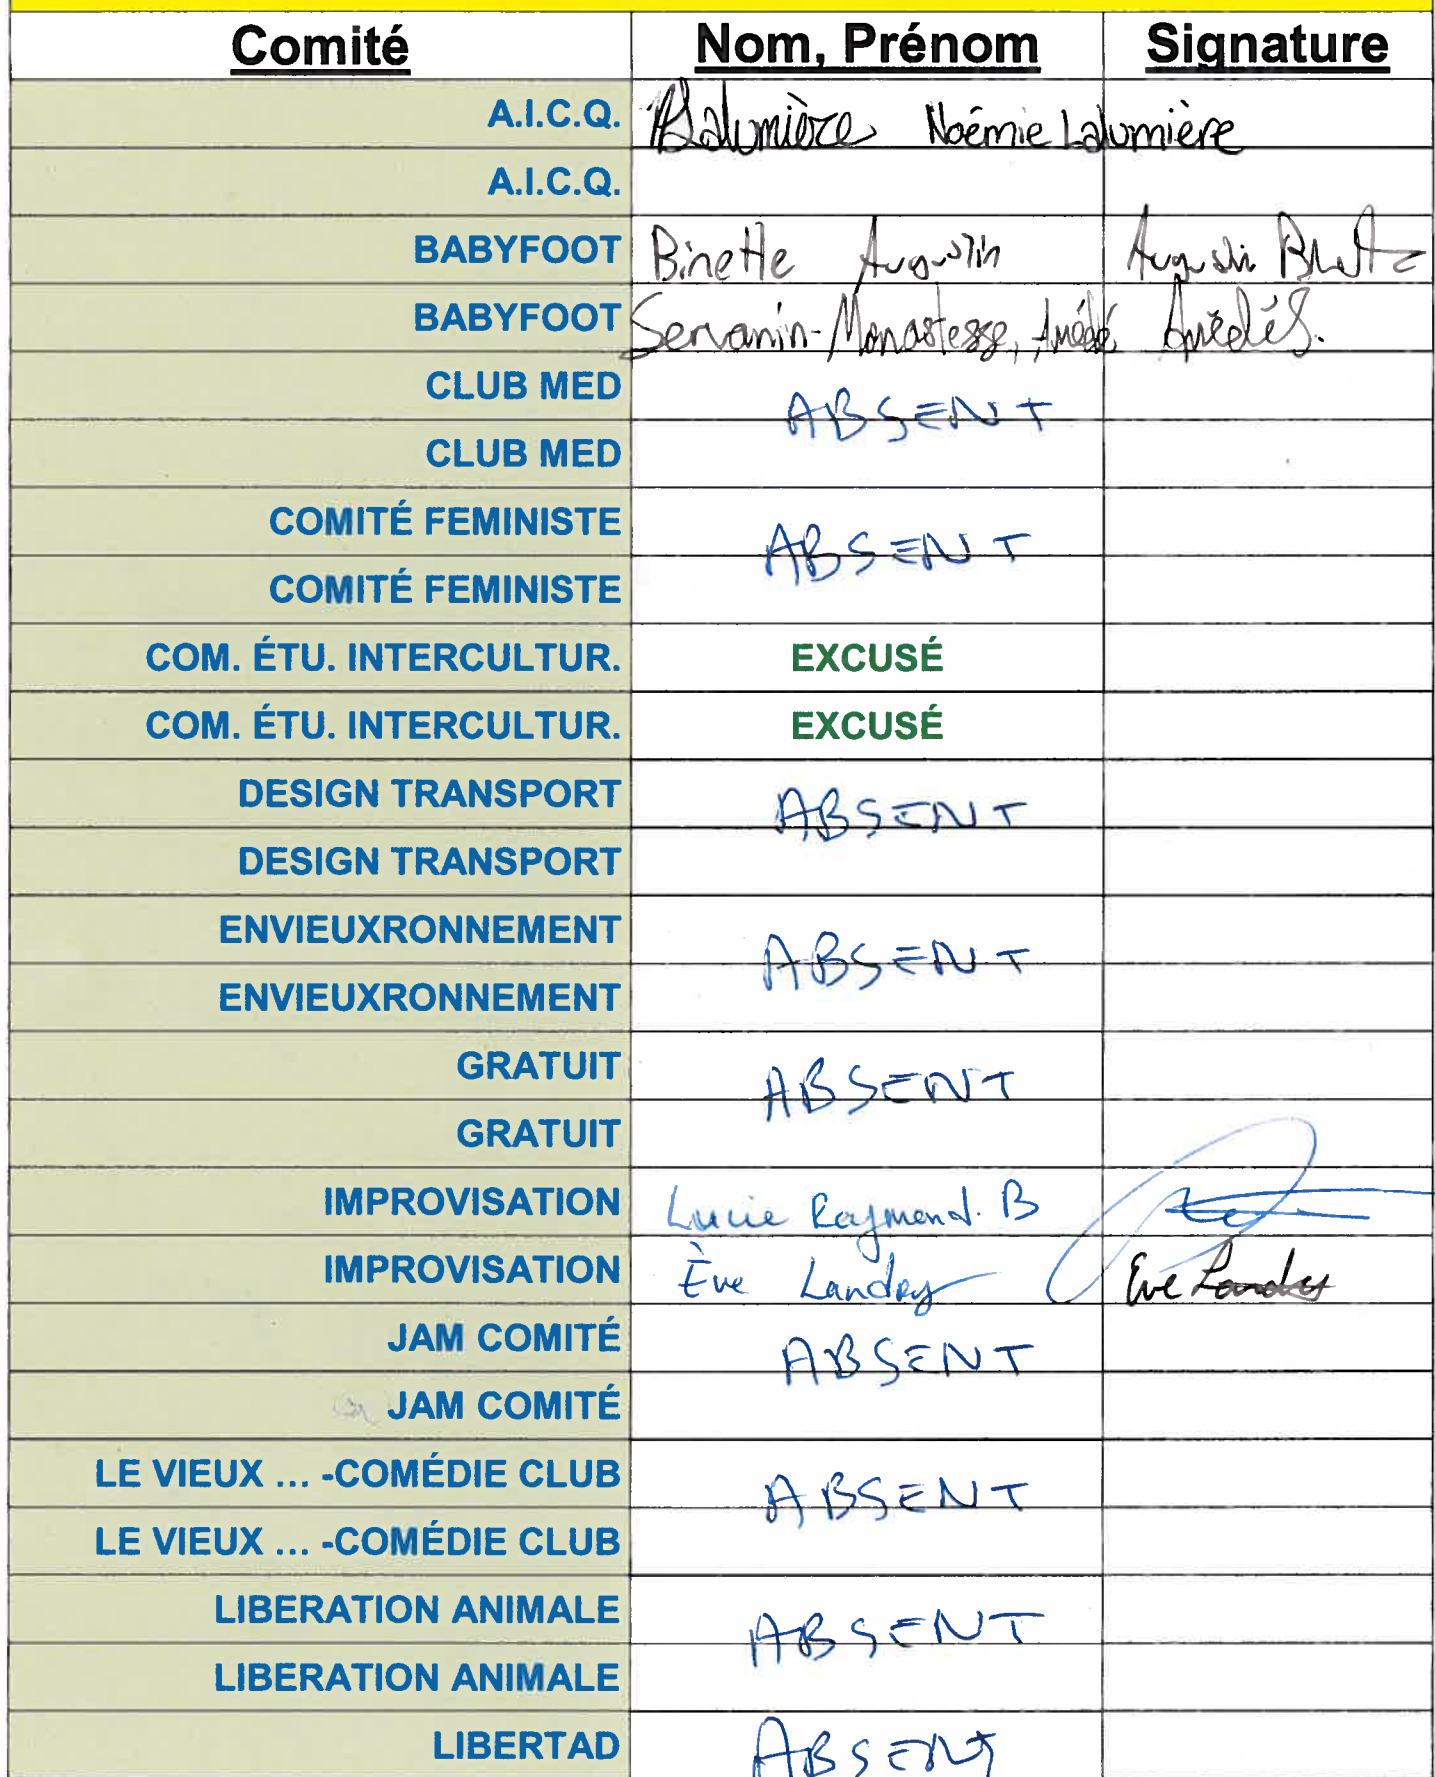 Comité Nom, Prénom Signature
A.I.C.Q. Lalumière Noémie Lalumière
A.I.C.Q.
BABYFOOT Binette Augustin Augustin
BABYFOOT Servanin-Monastesse, Amédé Amédé S.
CLUB MED ABSENT
CLUB MED
COMITÉ FEMINISTE ABSENT
COMITÉ FEMINISTE
COM. ÉTU. INTERCULTUR. EXCUSÉ
COM. ÉTU. INTERCULTUR. EXCUSÉ
DESIGN TRANSPORT ABSENT
DESIGN TRANSPORT
ENVIEUXRONNEMENT ABSENT
ENVIEUXRONNEMENT
GRATUIT ABSENT
GRATUIT
IMPROVISATION Lucie Raymond. B
IMPROVISATION Ève Landry Eve Landry
JAM COMITÉ ABSENT
JAM COMITÉ
LE VIEUX ... -COMÉDIE CLUB ABSENT
LE VIEUX ... -COMÉDIE CLUB
LIBERATION ANIMALE ABSENT
LIBERATION ANIMALE
LIBERTAD ABSENT